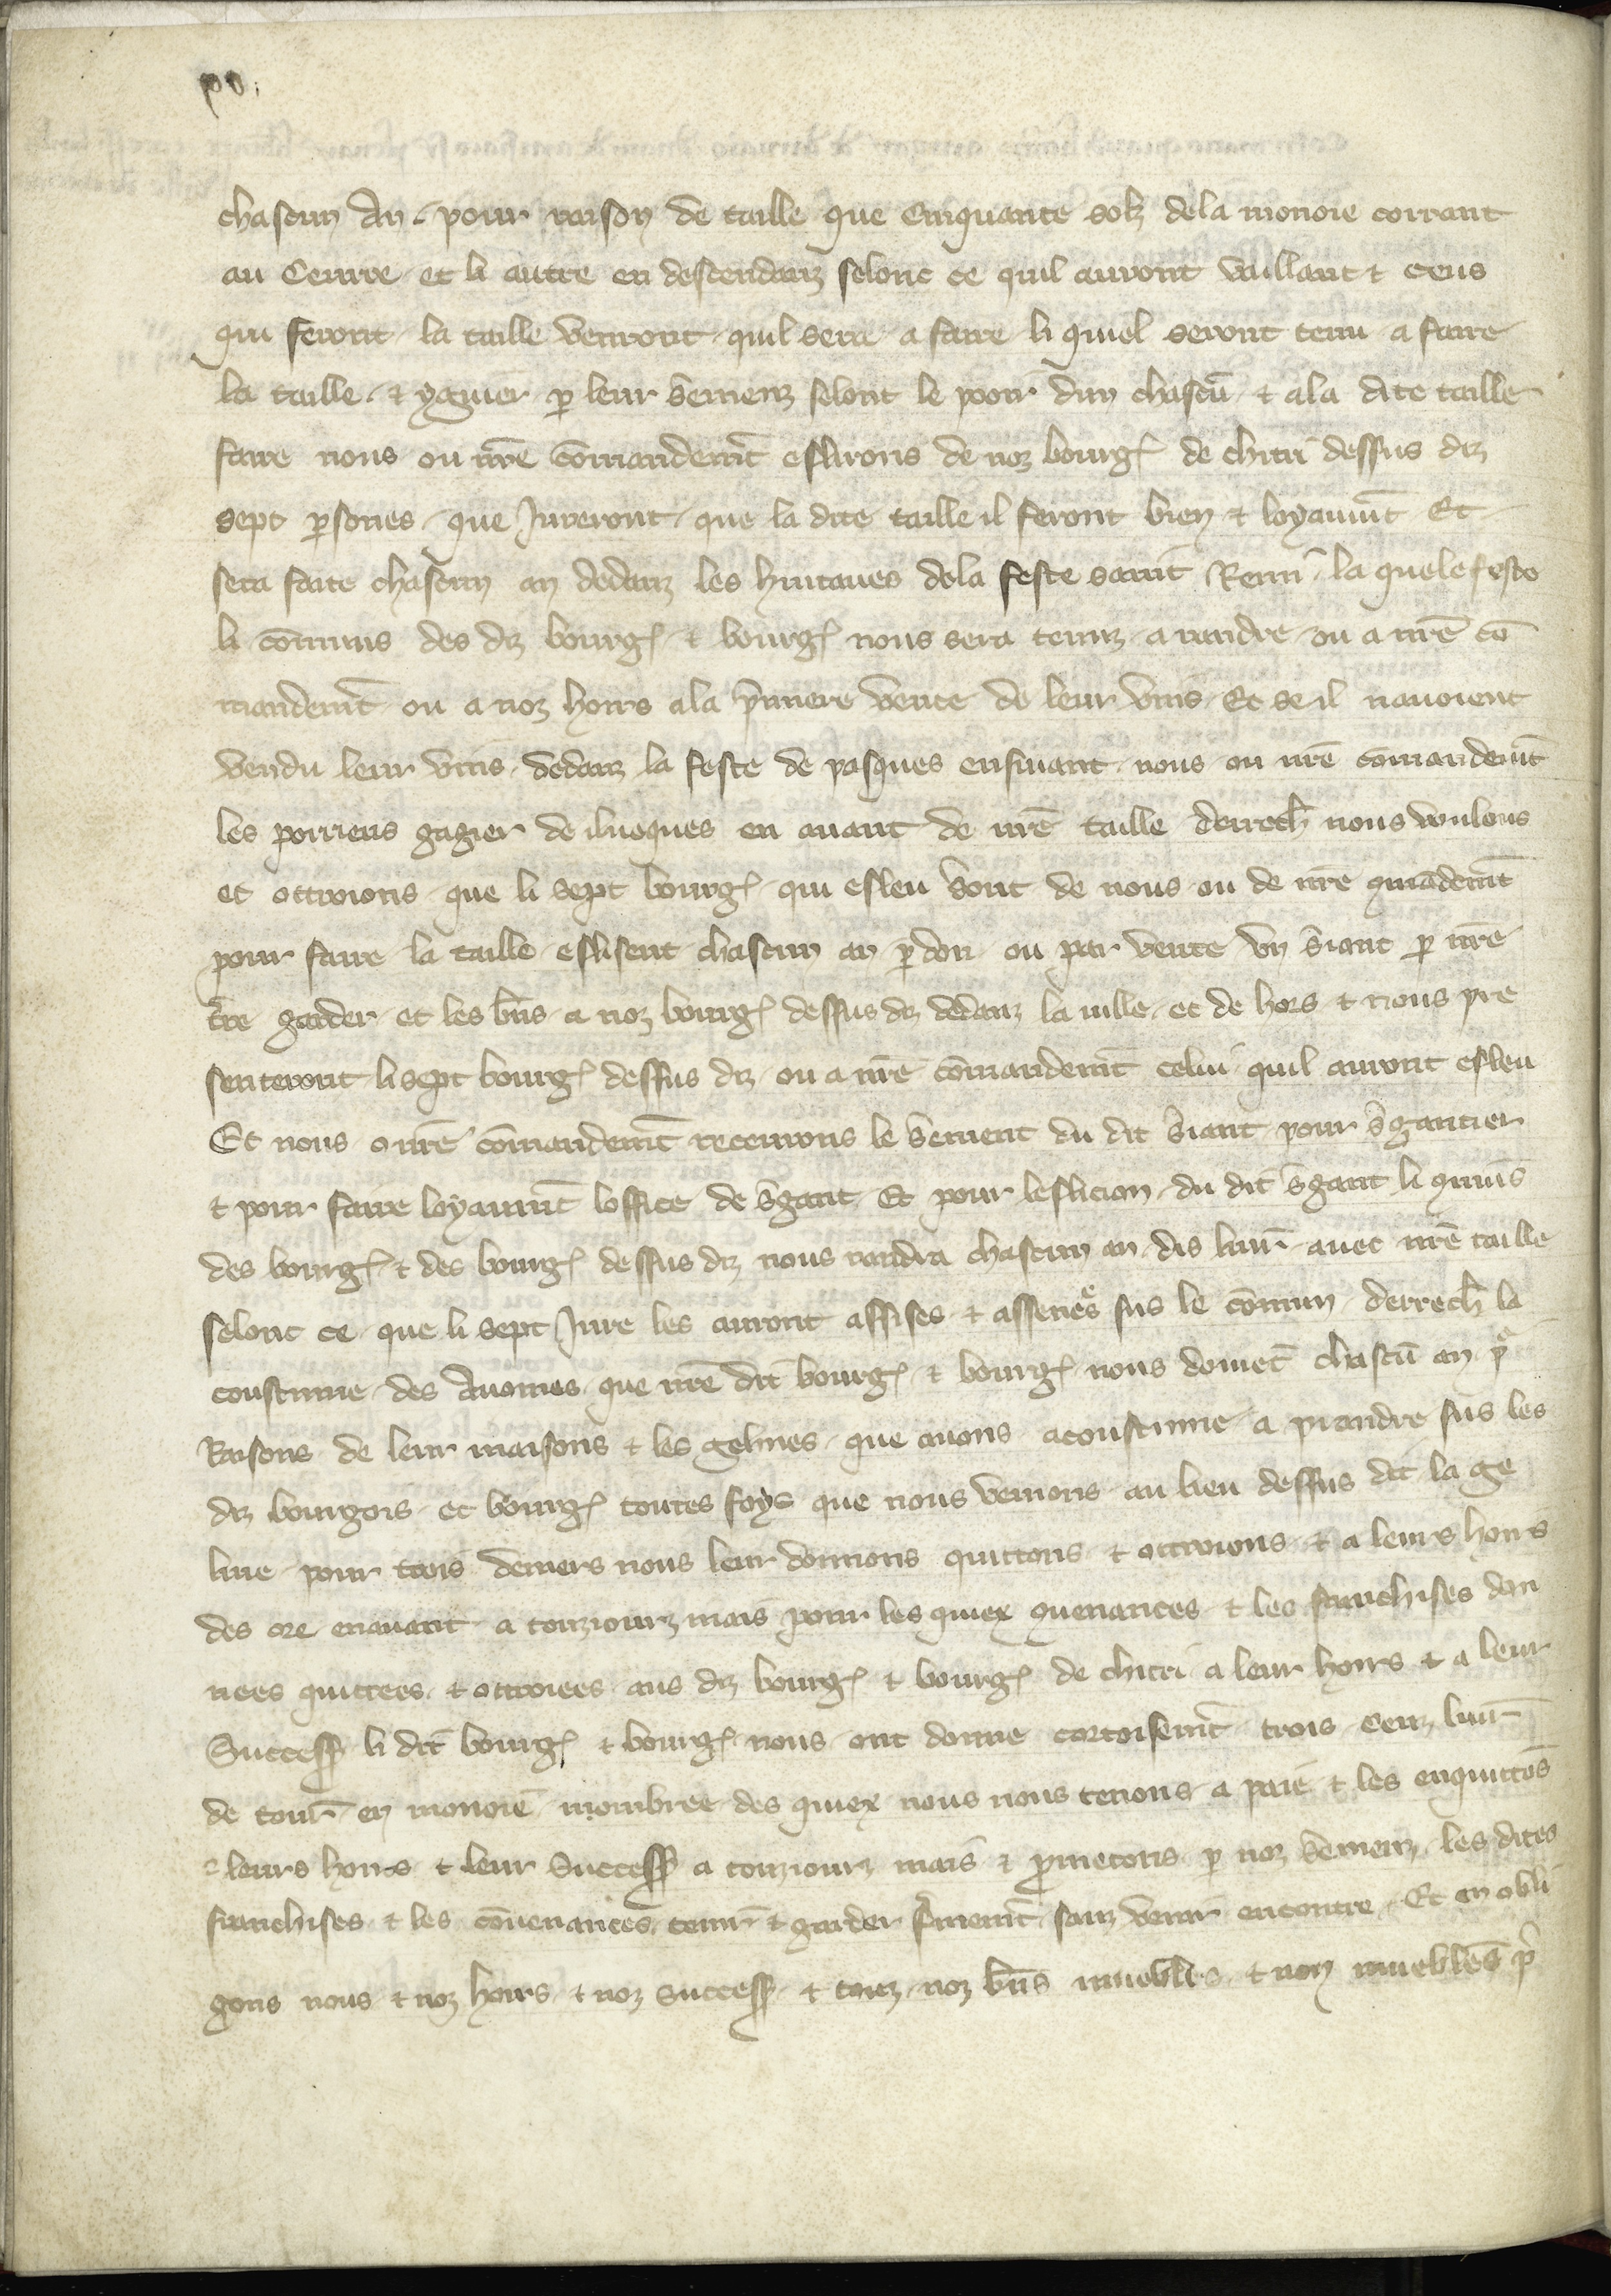 chascun An pour raison de taille que Cinquante solz dela monoie corrant
au Cenrre et li autre en descendanz selonc ce quil auront vaillant & ceus
qui feront la taille venront quil sera a faire li quiel seront tenu a faire
la taille & ygauer p leur seremenz selont le pooir dun chascū & ala dite taille
faire nous ou nr̄e cōmandemt̄ eslirons de noz bourg de chitri dessus diz
sept psones que Jureront que la dite taille il feront bien & loyaumt̄ Et
sera faite chascun an dedanz les huitaues dela feste saint Remi la quele feste
li cōmuns des diz bourg & bourg nous sera tenuz a randre ou a nr̄e cō
mandemt̄ ou a noz hoirs ala pmiere vente de leur vins Et se il nauoient
vendu leur vins dedanz la feste de pasques ensiuant nous ou nr̄e cōmandemt̄
les porriens gagier de iluoques en auant de nr̄e taille derrech nous voulons
et ottroions que li sept bourg qui esleu sont de nous ou de nr̄e qmādemt̄
pour faire la taille eslisent chascun an p don ou par vente vn siant p nr̄e
tr̄e garder et les bn̄s a noz bourg dessus diz dedanz la uille et de hors & nous pre
senteront li sept bourg dessus diz ou a nr̄e cōmandemt̄ celui quil auront esleu
Et nous o nr̄e cōmandemt̄ receurons le serement du dit siant pour sgantier
& pour faire loyaumt̄ loffice de sgant Et pour leslicion du dit sgant li qmuns
des bourg & des bourg dessus diz nous randra chascun an dis liur̄ auec nr̄e taille
selonc ce que li sept Jure les auront assises & assenes sus le cōmun derrech la
coustume des Auoines que nr̄e dit bourg & bourg nous doiuēt chascū an p
Raisons de leur maisons & les gelines que auons acoustume a prandre sus les
diz bourgois et bourg toutes foys que nous venions au lieu dessus dit la ge
line pour trois deniers nous leur donnons quittons & ottroions & a leurs hoirs
des ore enauant a touziourz mais pour les quiex quenances & les franchises don
nees quittees & ottroiees aus diz bourg & bourg de chitri a leur hoirs & a leur
Success li dit bourg & bourg nous ont donne cortoisemt̄ trois Cenz liur̄
de tour̄ en monoie nombree des quiex nous nous tenons a paie & les enquittōs
& leurs hoirs & leur Success a touziourz mais & pmetons p noz seremenz les dites
franchises & les cōuenances tenir & garder fmemt̄ sanz venir encontre Et en obli
gons nous & noz hoirs & noz success & touz noz bn̄s muebles & non muebles p